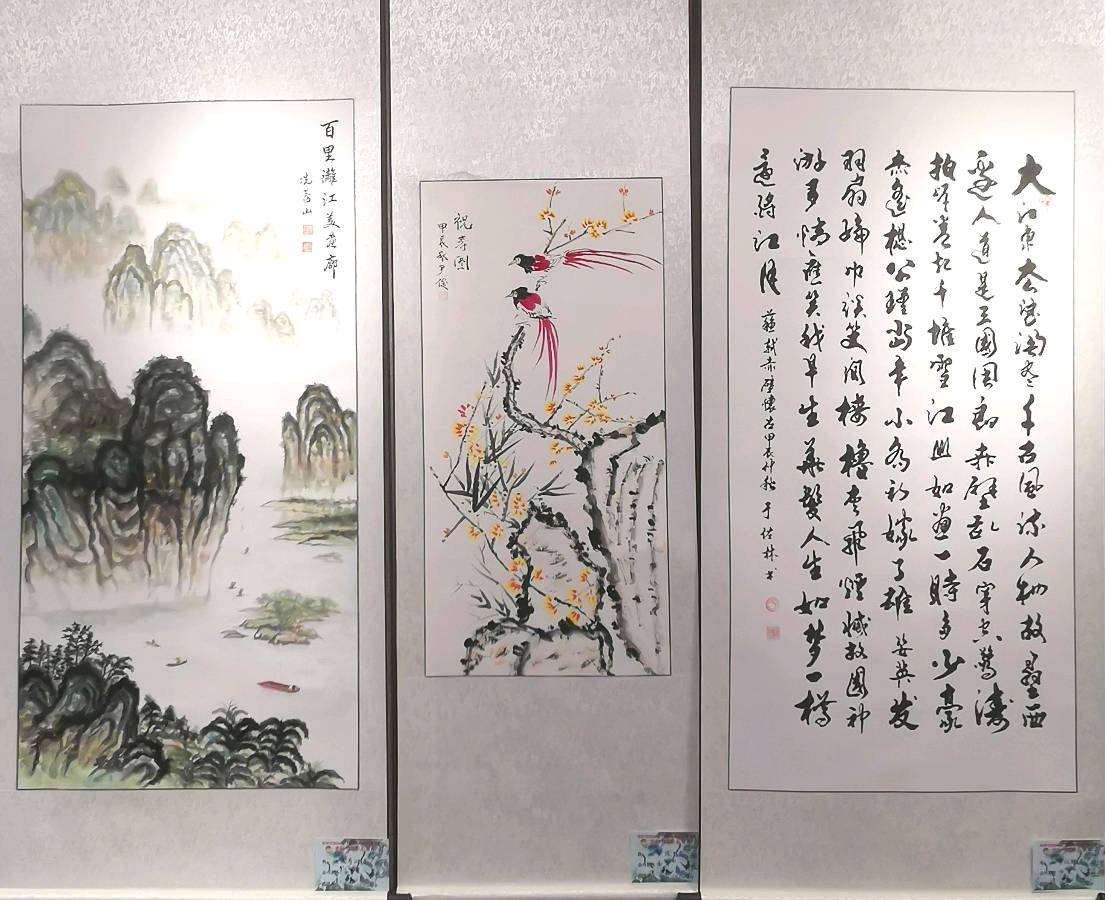 百里灕江美畫廊
山
祝壽圖
甲辰秋尹
大江東去浪淘盡千古風流人物故壘西
邊人道是三國周郎赤壁亂石穿空驚濤
拍岸卷起千堆雪江山如畫一時多少豪
杰遙想公瑾當年小喬初嫁了雄姿英發
羽扇綸巾談笑間檣櫓灰飛煙滅故國神
游多情應笑我早生華髮人生如夢一樽
還酹江月
蘇軾赤壁懷古甲辰仲秋于林书